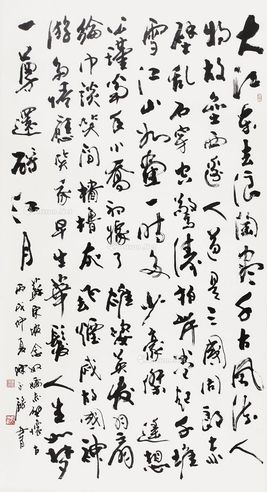 大江東去浪淘盡千古風流人
物故壘西邊人道是三國周郎赤
壁亂石穿空驚濤拍岸卷起千堆
雪江山如畫一時多少豪傑遥想
公瑾當年小喬初嫁了雄姿英發羽扇
綸巾談笑間檣櫓灰飛煙滅故國神
游多情應笑我早生華髮人生如夢
一尊還酹江月
蘇東坡念奴嬌赤壁懷古
丙戌仲夏 書